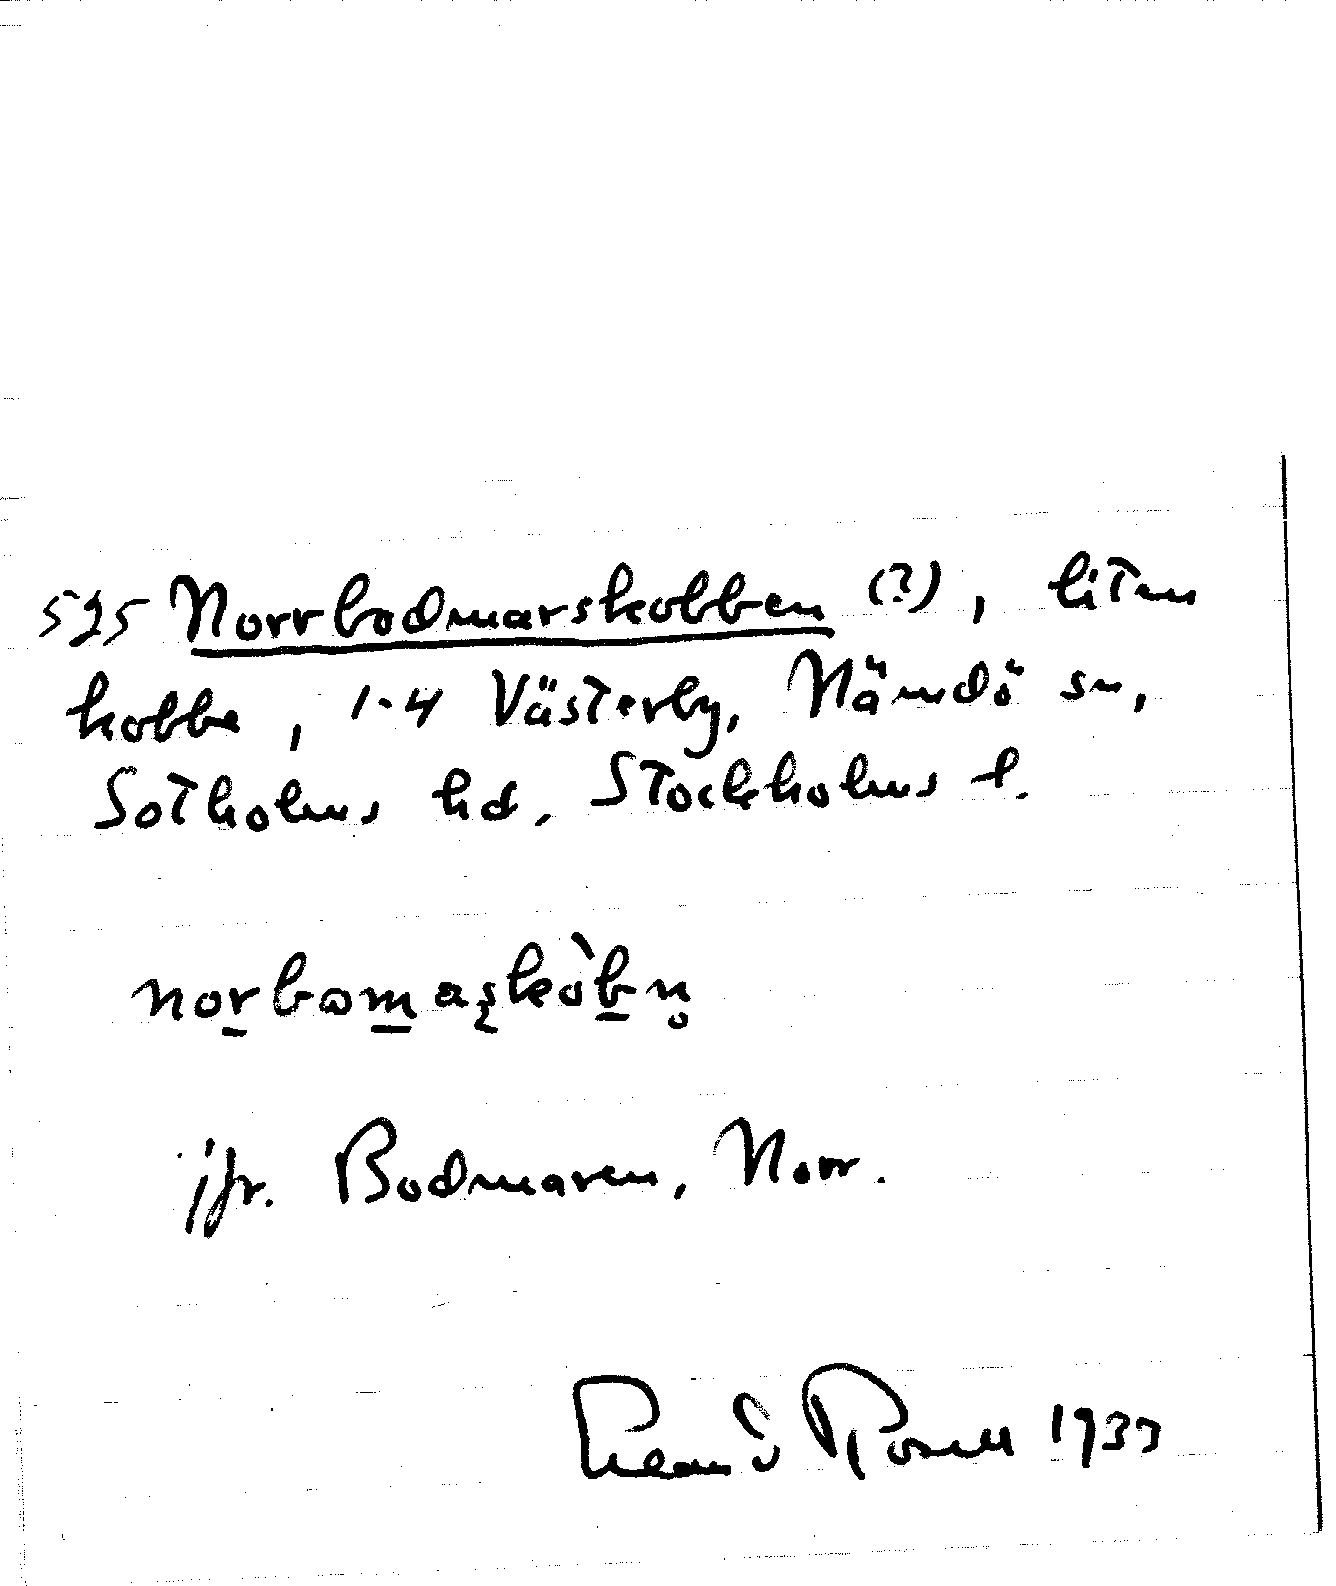 525 Norrbodmarskobben (?), liten
kobbe, 1-4 Västerby, Nämdö sn,
Sotholms hd. Stockholms l.
norbomaskòbn̥
jfr. Bodmaren, Norr.
1933